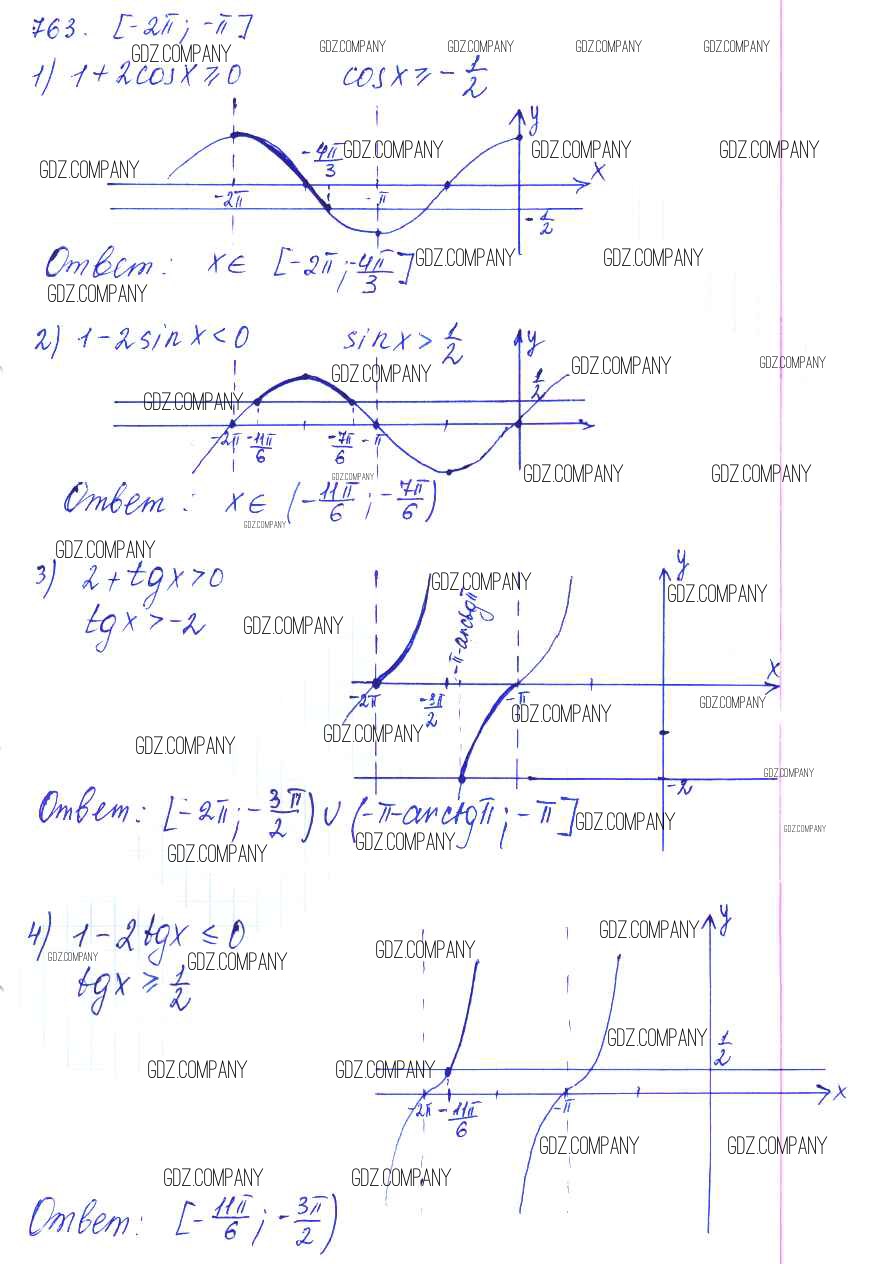 763. [-2π; -π]
GDZ.COMPANY GDZ.COMPANY GDZ.COMPANY GDZ.COMPANY GDZ.COMPANY
1) 1+2cosx ≥ 0 cosx ≥ -1/2
y
-4π/3 GDZ.COMPANY GDZ.COMPANY GDZ.COMPANY
GDZ.COMPANY x
-2π -π
-1/2
Ответ: x∈ [-2π; -4π/3] GDZ.COMPANY GDZ.COMPANY
GDZ.COMPANY
2) 1-2sinx < 0 sinx > 1/2 y
GDZ.COMPANY GDZ.COMPANY GDZ.COMPANY
GDZ.COMPANY 1/2
-2π -11π/6 -7π/6 -π
GDZ.COMPANY GDZ.COMPANY GDZ.COMPANY
Ответ: x∈ (-11π/6; -7π/6)
GDZ.COMPANY
GDZ.COMPANY
3) 2+tgx > 0 y
GDZ.COMPANY GDZ.COMPANY
tgx > -2 GDZ.COMPANY -π-arctgπ
x
-2π -3π/2 -π GDZ.COMPANY
GDZ.COMPANY GDZ.COMPANY GDZ.COMPANY
GDZ.COMPANY
-2
Ответ: [-2π; -3π/2) ∪ (-π-arctgπ; -π] GDZ.COMPANY
GDZ.COMPANY
GDZ.COMPANY GDZ.COMPANY
4) 1-2tgx ≤ 0 y
GDZ.COMPANY GDZ.COMPANY
GDZ.COMPANY GDZ.COMPANY
tgx ≥ 1/2
GDZ.COMPANY 1/2
GDZ.COMPANY GDZ.COMPANY
x
-2π -11π/6 -π
GDZ.COMPANY GDZ.COMPANY
GDZ.COMPANY GDZ.COMPANY
Ответ: [-11π/6; -3π/2)